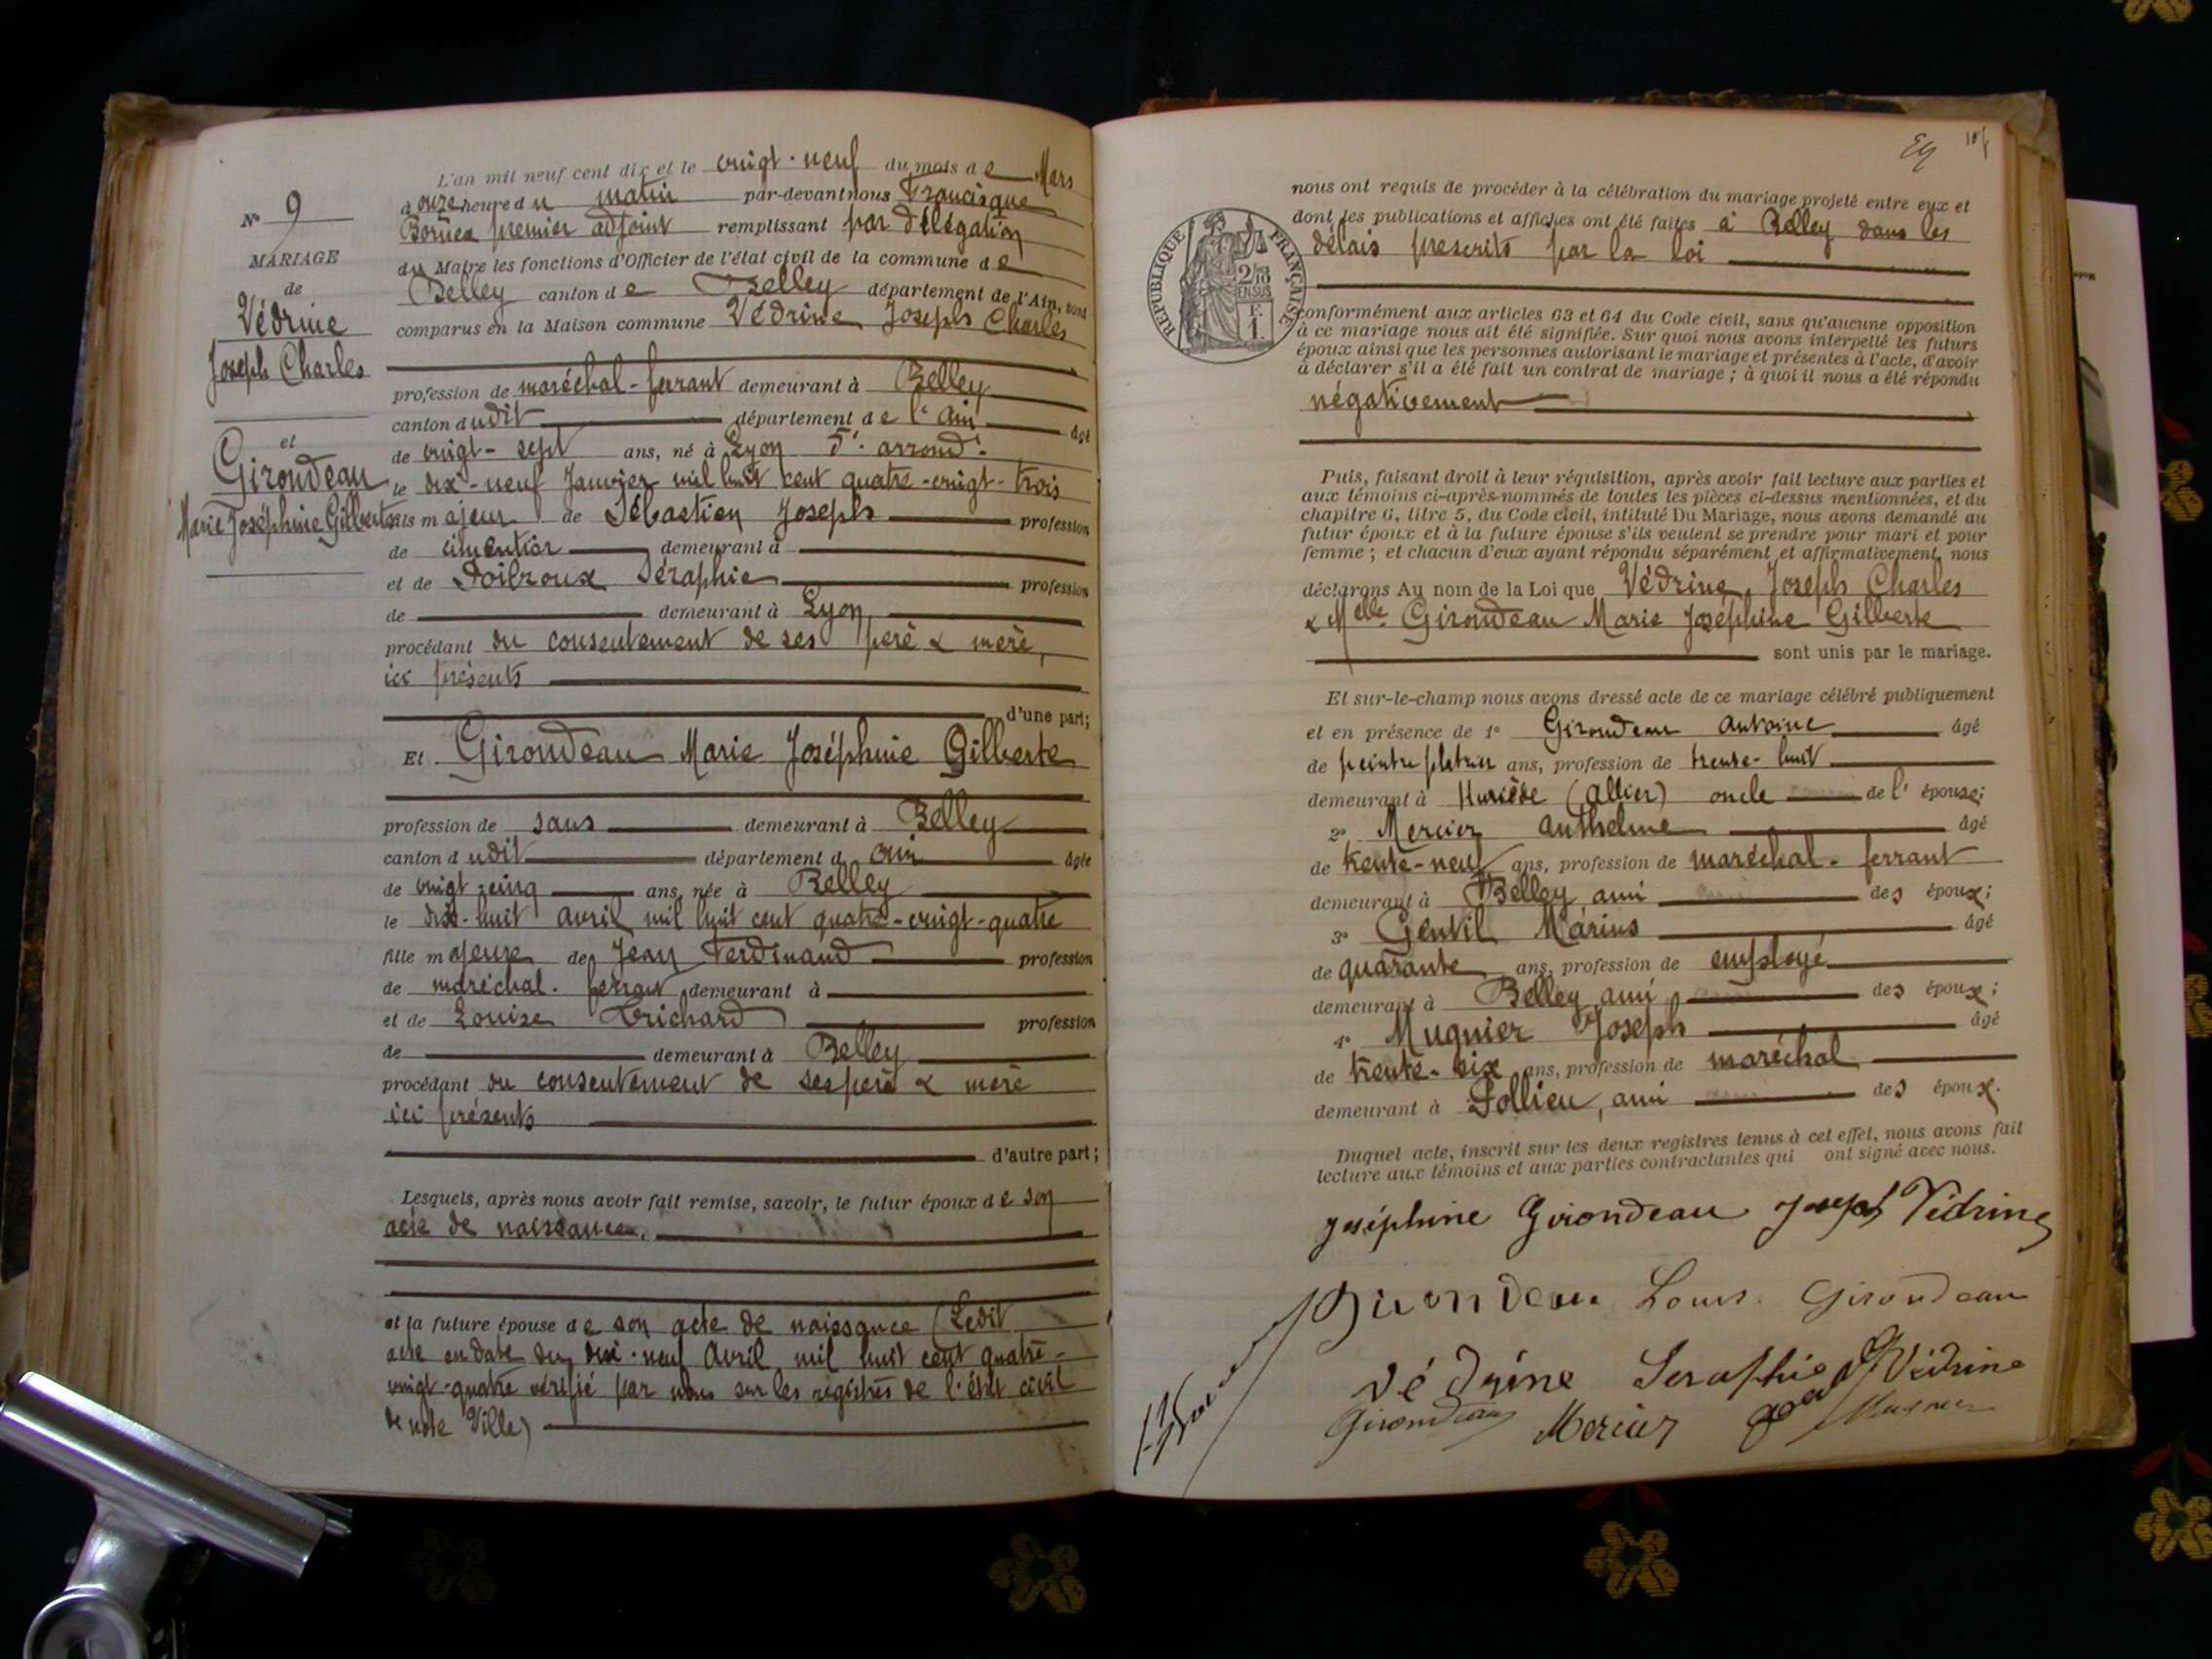 L'an mil neuf cent dix et le vingt-neuf du mois de Mars
à onze heure du matin par-devant nous Francisque
premier adjoint remplissant par délégation
du Maire les fonctions d'Officier de l'état civil de la commune de
Belley canton de Belley département de l'Ain, sont
comparus en la Maison commune Védrine Joseph Charles
N° 9
MARIAGE
de
Védrine
Joseph Charles
et
Girondeau
Marie Joséphine Gilberte
profession de maréchal-ferrant demeurant à Belley
canton dudit département de l'Ain âgé
de vingt-sept ans, né à Lyon 5e. arrondt.
le dix-neuf Janvier mil huit cent quatre-vingt-trois
fils majeur de Sébastien Joseph profession
de cimentier demeurant à
et de Séraphie profession
de demeurant à Lyon
procédant du consentement de ses père & mère,
ici présents
d'une part;
Et Girondeau Marie Joséphine Gilberte
profession de sans demeurant à Belley
canton dudit département d Ain âgée
de vingt-cinq ans, née à Belley
le dix-huit avril mil huit cent quatre-vingt-quatre
fille majeure de Jean Ferdinand profession
de maréchal-ferrant demeurant à
et de Louise Trichard profession
de demeurant à Belley
procédant du consentement de ses père & mère
ici présents
d'autre part;
Lesquels, après nous avoir fait remise, savoir, le futur époux de son
acte de naissance,
et la future épouse de son acte de naissance (Ledit
acte en date du dix-neuf Avril mil huit cent quatre-
vingt-quatre vérifié par nous sur les registres de l'état civil
de notre Ville)
105
RÉPUBLIQUE FRANÇAISE
2/10
EN SUS
F.
1.
nous ont requis de procéder à la célébration du mariage projeté entre eux et
dont les publications et affiches ont été faites à Belley dans les
délais prescrits par la loi
conformément aux articles 63 et 64 du Code civil, sans qu'aucune opposition
à ce mariage nous ait été signifiée. Sur quoi nous avons interpellé les futurs
époux ainsi que les personnes autorisant le mariage et présentes à l'acte, d'avoir
à déclarer s'il a été fait un contrat de mariage; à quoi il nous a été répondu
négativement
Puis, faisant droit à leur réquisition, après avoir fait lecture aux parties et
aux témoins ci-après-nommés de toutes les pièces ci-dessus mentionnées, et du
chapitre 6, titre 5, du Code civil, intitulé Du Mariage, nous avons demandé au
futur époux et à la future épouse s'ils veulent se prendre pour mari et pour
femme; et chacun d'eux ayant répondu séparément et affirmativement, nous
déclarons Au nom de la Loi que Védrine Joseph Charles
& Melle Girondeau Marie Joséphine Gilberte
sont unis par le mariage.
Et sur-le-champ nous avons dressé acte de ce mariage célébré publiquement
et en présence de 1° Girondeau Antoine âgé
de peintre plâtrier ans, profession de trente-huit
demeurant à Huriède (Allier) oncle de l'épouse;
2° Mercier Anthelme âgé
de trente-neuf ans, profession de maréchal-ferrant
demeurant à Belley, ami des époux;
3° Gentil Marius âgé
de quarante ans, profession de employé
demeurant à Belley, ami des époux;
4° Mugnier Joseph âgé
de trente-six ans, profession de maréchal
demeurant à Pollieu, ami des époux.
Duquel acte, inscrit sur les deux registres tenus à cet effet, nous avons fait
lecture aux témoins et aux parties contractantes qui ont signé avec nous.
Joséphine Girondeau Joseph Védrine
Girondeau Louis Girondeau
Védrine Seraphie Védrine
Girondeau Mercier Mugnier